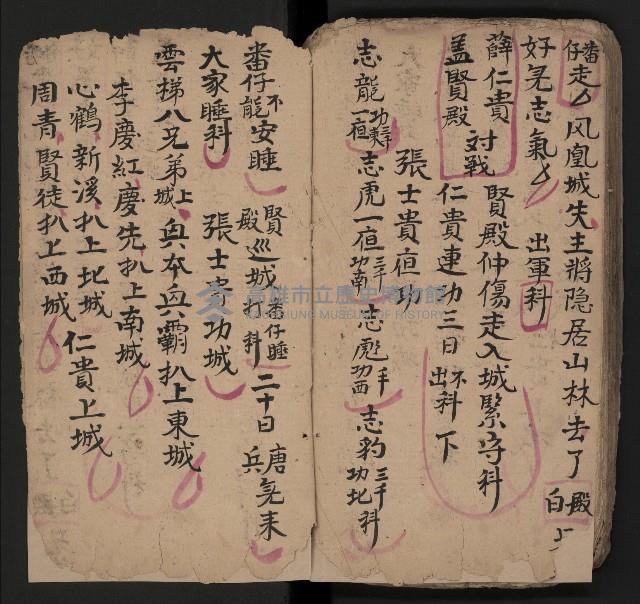 番仔走々风凰城失主將隐居山林去了 殿白 上
好旡志氣々 出軍科
薛仁貴 盖賢殿 対戦 賢殿仲傷走入城緊守科
仁貴連功三日 不出科 下
張士貴夜功
志龍 三千功東 一夜 志虎一夜 三千功南 志彪 三千功西 志豹 三千功北 科
番仔不能安睡 賢殿巡城 番仔睡科 二十日 唐兵旡来
大家睡科 張士貴功城
雲梯八兄弟上城 興本興霸扒上東城
李慶紅慶先扒上南城
心鶴新溪扒上北城 仁貴上城
周青賢徒扒上西城
高雄市立歷史博物館
KAOHSIUNG MUSEUM OF HISTORY